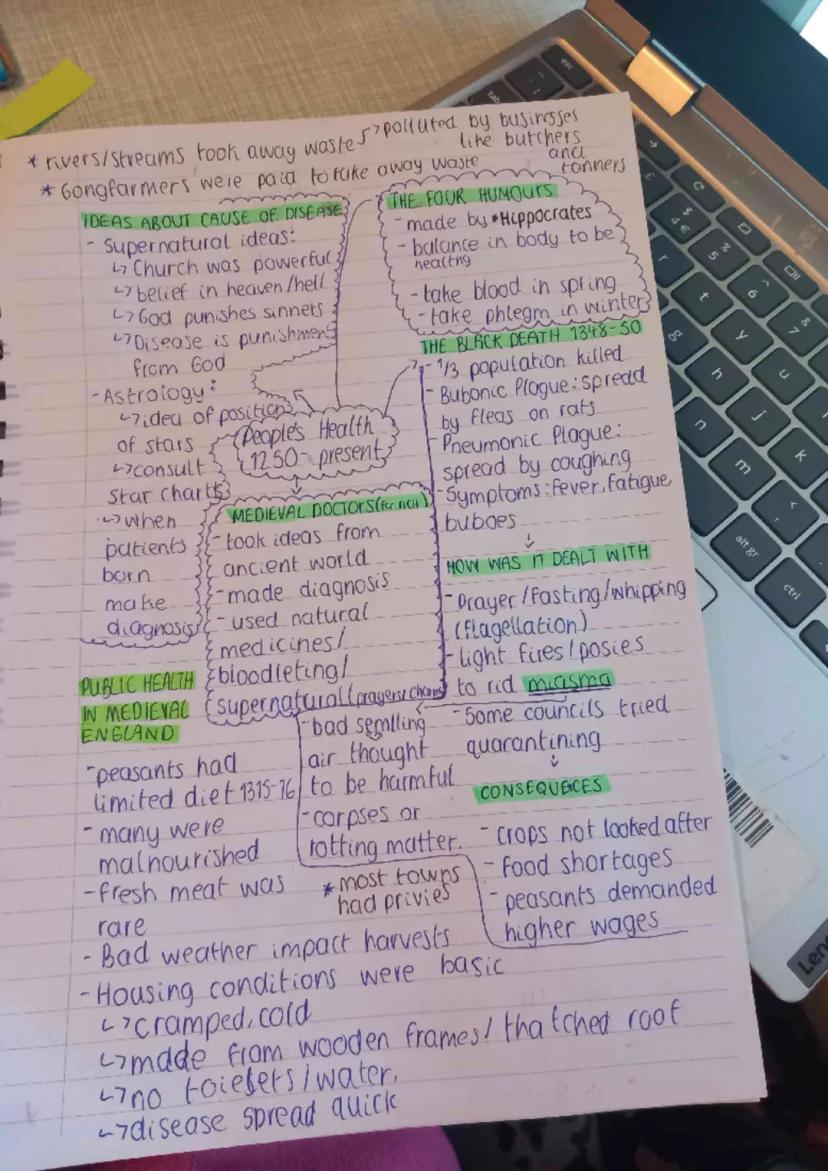 * rivers/streams took away waste
↳ polluted by businesses
like butchers
and
tanners
* Gongfarmers were paid to take away waste
IDEAS ABOUT CAUSE OF DISEASE
- Supernatural ideas:
↳ Church was powerful
↳ belief in heaven/hell
↳ God punishes sinners
↳ Disease is punishment
from God
- Astrology:
↳ idea of position
of stars
↳ consult
star charts
↳ when
patients
born
make
diagnosis
THE FOUR HUMOURS
- made by *Hippocrates
- balance in body to be
healthy
- take blood in spring
- take phlegm in winter
People's Health
1250- present
THE BLACK DEATH 1348-50
- 1/3 population killed
- Bubonic Plague: spread
by fleas on rats
- Pneumonic Plague:
spread by coughing
- Symptoms: fever, fatigue
buboes
MEDIEVAL DOCTORS
- took ideas from
ancient world
- made diagnosis
- used natural
medicines/
bloodleting/
supernatural (prayers/charm
HOW WAS IT DEALT WITH
- Prayer/Fasting/whipping
(flagellation)
- light fires/posies
to rid miasma
- Some councils tried
quarantining
- bad semlling
air thought
to be harmful
- corpses or
rotting matter.
CONSEQUECES
- crops not looked after
- food shortages
- peasants demanded
higher wages
PUBLIC HEALTH
IN MEDIEVAL
ENGLAND
- peasants had
limited diet 1315-16
- many were
malnourished
- fresh meat was
rare
* most towns
had privies
- Bad weather impact harvests
- Housing conditions were basic
↳ cramped, cold
↳ made from wooden frames/ thatched roof
↳ no toielets/water.
↳ disease spread quick
esc
tab
alt gr
ctrl
r
t
y
u
g
h
j
k
n
m
£
$
4
€
%
5
6
7
Len